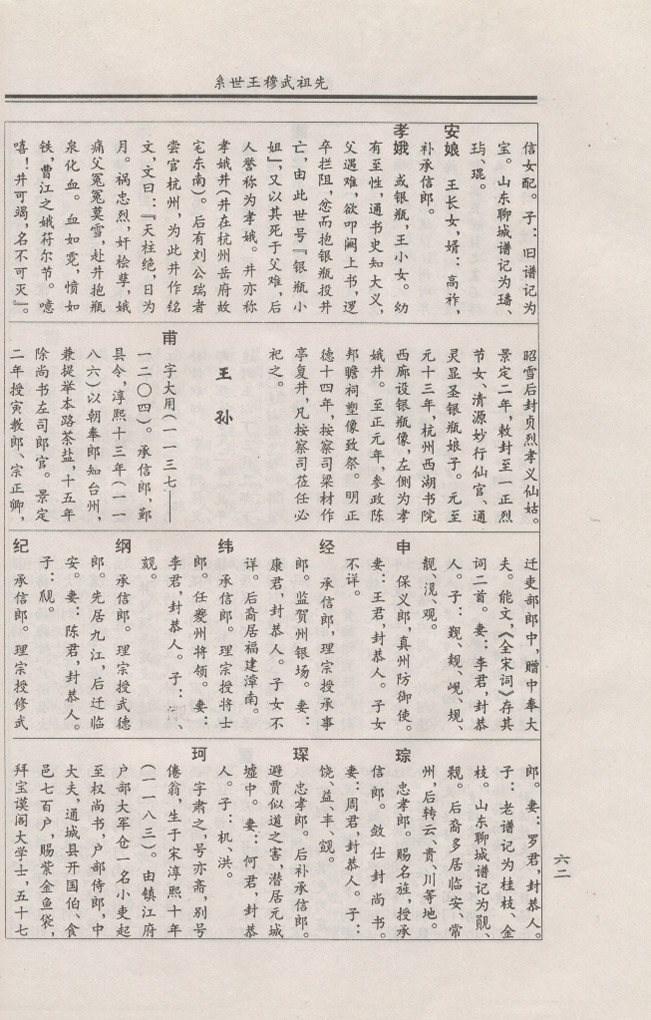 先祖武穆王世系
信女配。子：旧谱记为
宝。山东聊城谱记为璠、
玙、琨。
安娘　王长女，婿：高祚，
补承信郎。
孝娥　或银瓶，王小女。幼
有至性，通书史知大义，
父遇难，欲叩阙上书，逻
卒拦阻，忿而抱银瓶投井
亡，由此世号『银瓶小
姐』，又以其死于父难，后
人誉称为孝娥。井亦称
孝娥井（井在杭州岳府故
宅东南）。后有刘公瑞者
尝官杭州，为此井作铭
文，文曰：『天柱绝，日为
月。祸忠烈，奸桧孽，娥
痛父冤冤莫雪，赴井抱瓶
泉化血。血如霓，愤如
铁，曹江之娥符尔节。噫
嘻！井可竭，名不可灭』。
昭雪后封贞烈孝义仙姑。
景定二年，敕封至一正烈
节女、清源妙行仙官、通
灵显圣银瓶娘子。元至
元十三年，杭州西湖书院
西廊设银瓶像，左侧为孝
娥井。至正元年，参政陈
邦瞻祠塑像致祭。明正
德十四年，按察司梁材作
亭复井，凡按察司莅任必
祀之。
王　孙
甫　字大用（一一三七——
一二〇四）。承信郎，鄞
县令，淳熙十三年（一一
八六）以朝奉郎知台州，
兼提举本路茶盐，十五年
除尚书左司郎官。景定
二年授寅教郎、宗正卿，
迁吏部郎中，赠中奉大
夫。能文，《全宋词》存其
词二首。妻：李君，封恭
人。子：觐、觌、岘、规、
靓、涀、观。
申　保义郎，真州防御使。
妻：王君，封恭人。子女
不详。
经　承信郎，理宗授承事
郎。监贺州银场。妻：
康君，封恭人。子女不
详。后裔居福建漳南。
纬　承信郎。理宗授将士
郎。任夔州将领。妻：
李君，封恭人。子：、
觊。
纲　承信郎。理宗授武德
郎。先居九江，后迁临
安。妻：陈君，封恭人。
子：觇。
纪　承信郎。理宗授修武
郎。妻：罗君，封恭人。
子：老谱记为桂枝、金
枝。山东聊城谱记为觊、
觐。后裔多居临安、常
州，后转云、贵、川等地。
琮　忠孝郎。赐名旌，授承
信郎。敛仕封尚书。
妻：周君，封恭人。子：
饶、益、丰、觊。
琛　忠孝郎。后补承信郎。
避贾似道之害，潜居元城
墟中。妻：何君，封恭
人。子：机、洪。
珂　字肃之，号亦斋，别号
倦翁，生于宋淳熙十年
（一一八三）。由镇江府
户部大军仓一名小吏起
至权尚书，户部侍郎，中
大夫，通城县开国伯、食
邑七百户，赐紫金鱼袋，
拜宝谟阁大学士，五十七
六二